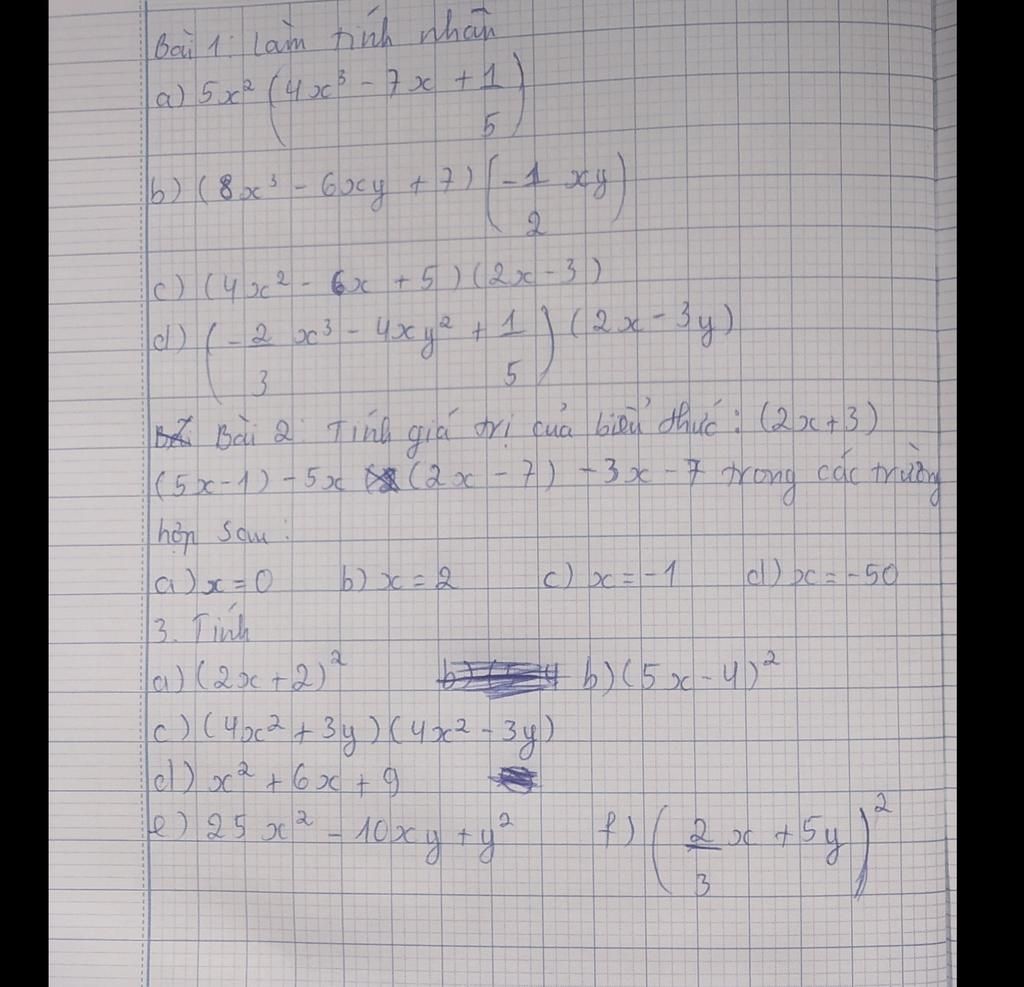 Bài 1: Làm tính nhân
a) 5x² (4x³ - 7x + 1/5)
b) (8x³ - 6xy + 7) (-1/2 xy)
c) (4x² - 6x + 5) (2x - 3)
d) (-2/3 x³ - 4xy² + 1/5) (2x - 3y)
Bài 2: Tính giá trị của biểu thức: (2x+3)
(5x-1) - 5x (2x - 7) - 3x - 7 trong các trường
hợp sau:
a) x = 0 b) x = 2 c) x = -1 d) x = -50
3. Tính
a) (2x + 2)² b) (5x - 4)²
c) (4x² + 3y) (4x² - 3y)
d) x² + 6x + 9
e) 25x² - 10xy + y² f) (2/3 x + 5y)²